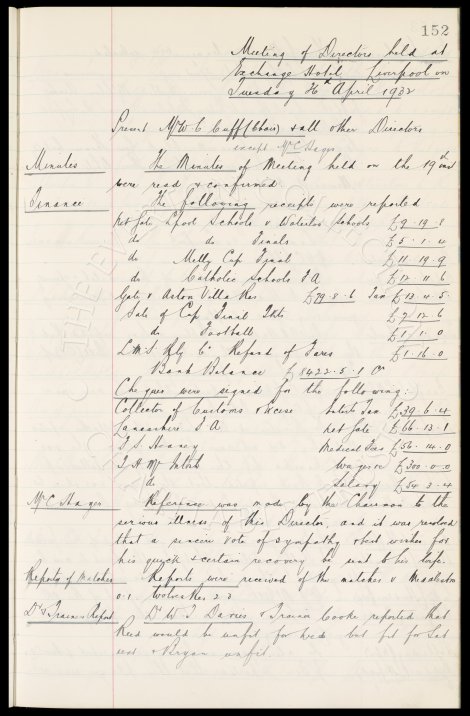 152
Meeting of Directors held at
Exchange Hotel Liverpool on
Tuesday 26th April 1932
Present Mr W C Cuff (Chair) & all other Directors
except Mr C
Minutes The Minutes of Meeting held on the 19th inst
were read & confirmed.
Finance The following receipts were reported
Net Gate Lpool Schools v Waterloo Schools £9-19-8
do do Finals £5-1-4
do Melly Cup Final £11-19-9
do Catholic Schools F A £12-11-6
Gate v Aston Villa Res. £79-8-6 Tax £13-4-5
Sale of Cup Final Tkts £7-12-6
do Football £1-1-0
L.M.S Rly Co Refund of Fares £1-16-0
Bank Balance £8422-5-1 Cr
Cheques were signed for the following:-
Collector of Customs & Excise Tax £39-6-4
Lancashire F A Net Gate £66-13-1
Medical Fees £56-14-0
Wages £300-0-0
do Salary £54-3-4
Mr C Reference was made by the Chairman to the
serious illness of this Director, and it was resolved
that a sincere vote of sympathy & best wishes for
his quick & certain recovery be sent to his wife.
Reports of matches Reports were received of the matches v Middlesbro
0.1 Wolves Res 2.3
Dr & Trainers Report Dr W J Davies & Trainer Cooke reported that
Reid would be unfit for but fit for Sat
& unfit.